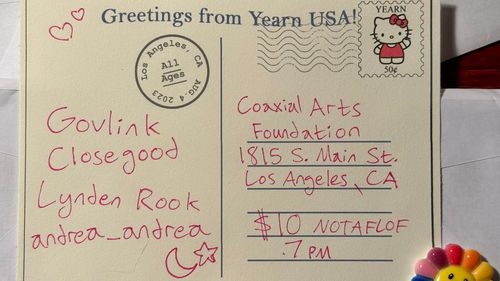 Greetings from Yearn USA!
YEARN
50¢
Los Angeles, CA
All
Ages
AUG 4 2023
Govlink
Closegood
Lynden Rook
andrea_andrea
Coaxial Arts
Foundation
1815 S. Main St.
Los Angeles, CA
$10 NOTAFLOF
7 PM